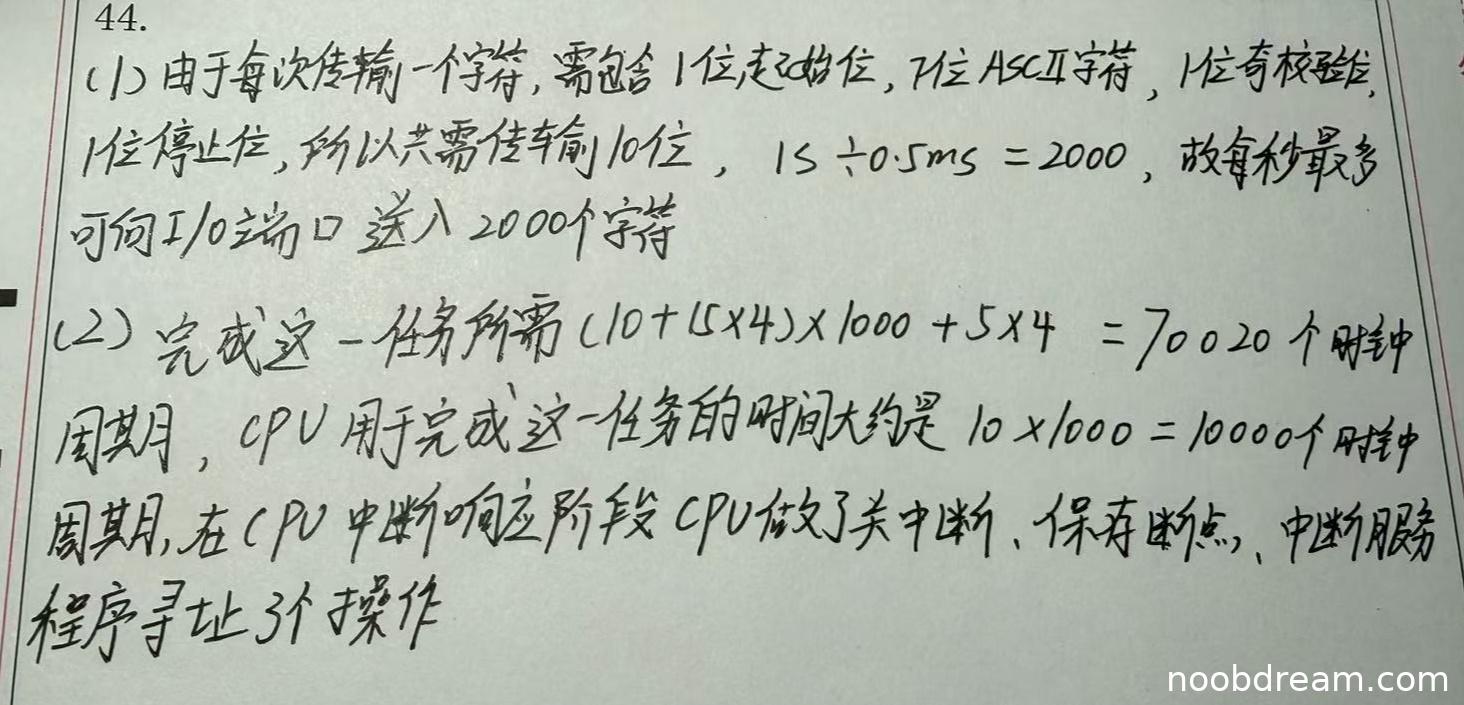 44.
(1) 由于每次传输一个字符, 需包含 1位起始位, 7位 ASCII字符, 1位奇校验位,
1位停止位, 所以共需传输10位, 1s ÷0.5ms = 2000, 故每秒最多
可向I/O端口 送入 2000个字符
(2) 完成这一任务所需 (10+15×4)×1000 + 5×4 = 70020 个时钟
周期, CPU 用于完成这一任务的时间大约是 10×1000 = 10000个时钟
周期, 在CPU中断响应阶段 CPU做了关中断、保存断点、中断服务
程序寻址 3个操作
noobdream.com